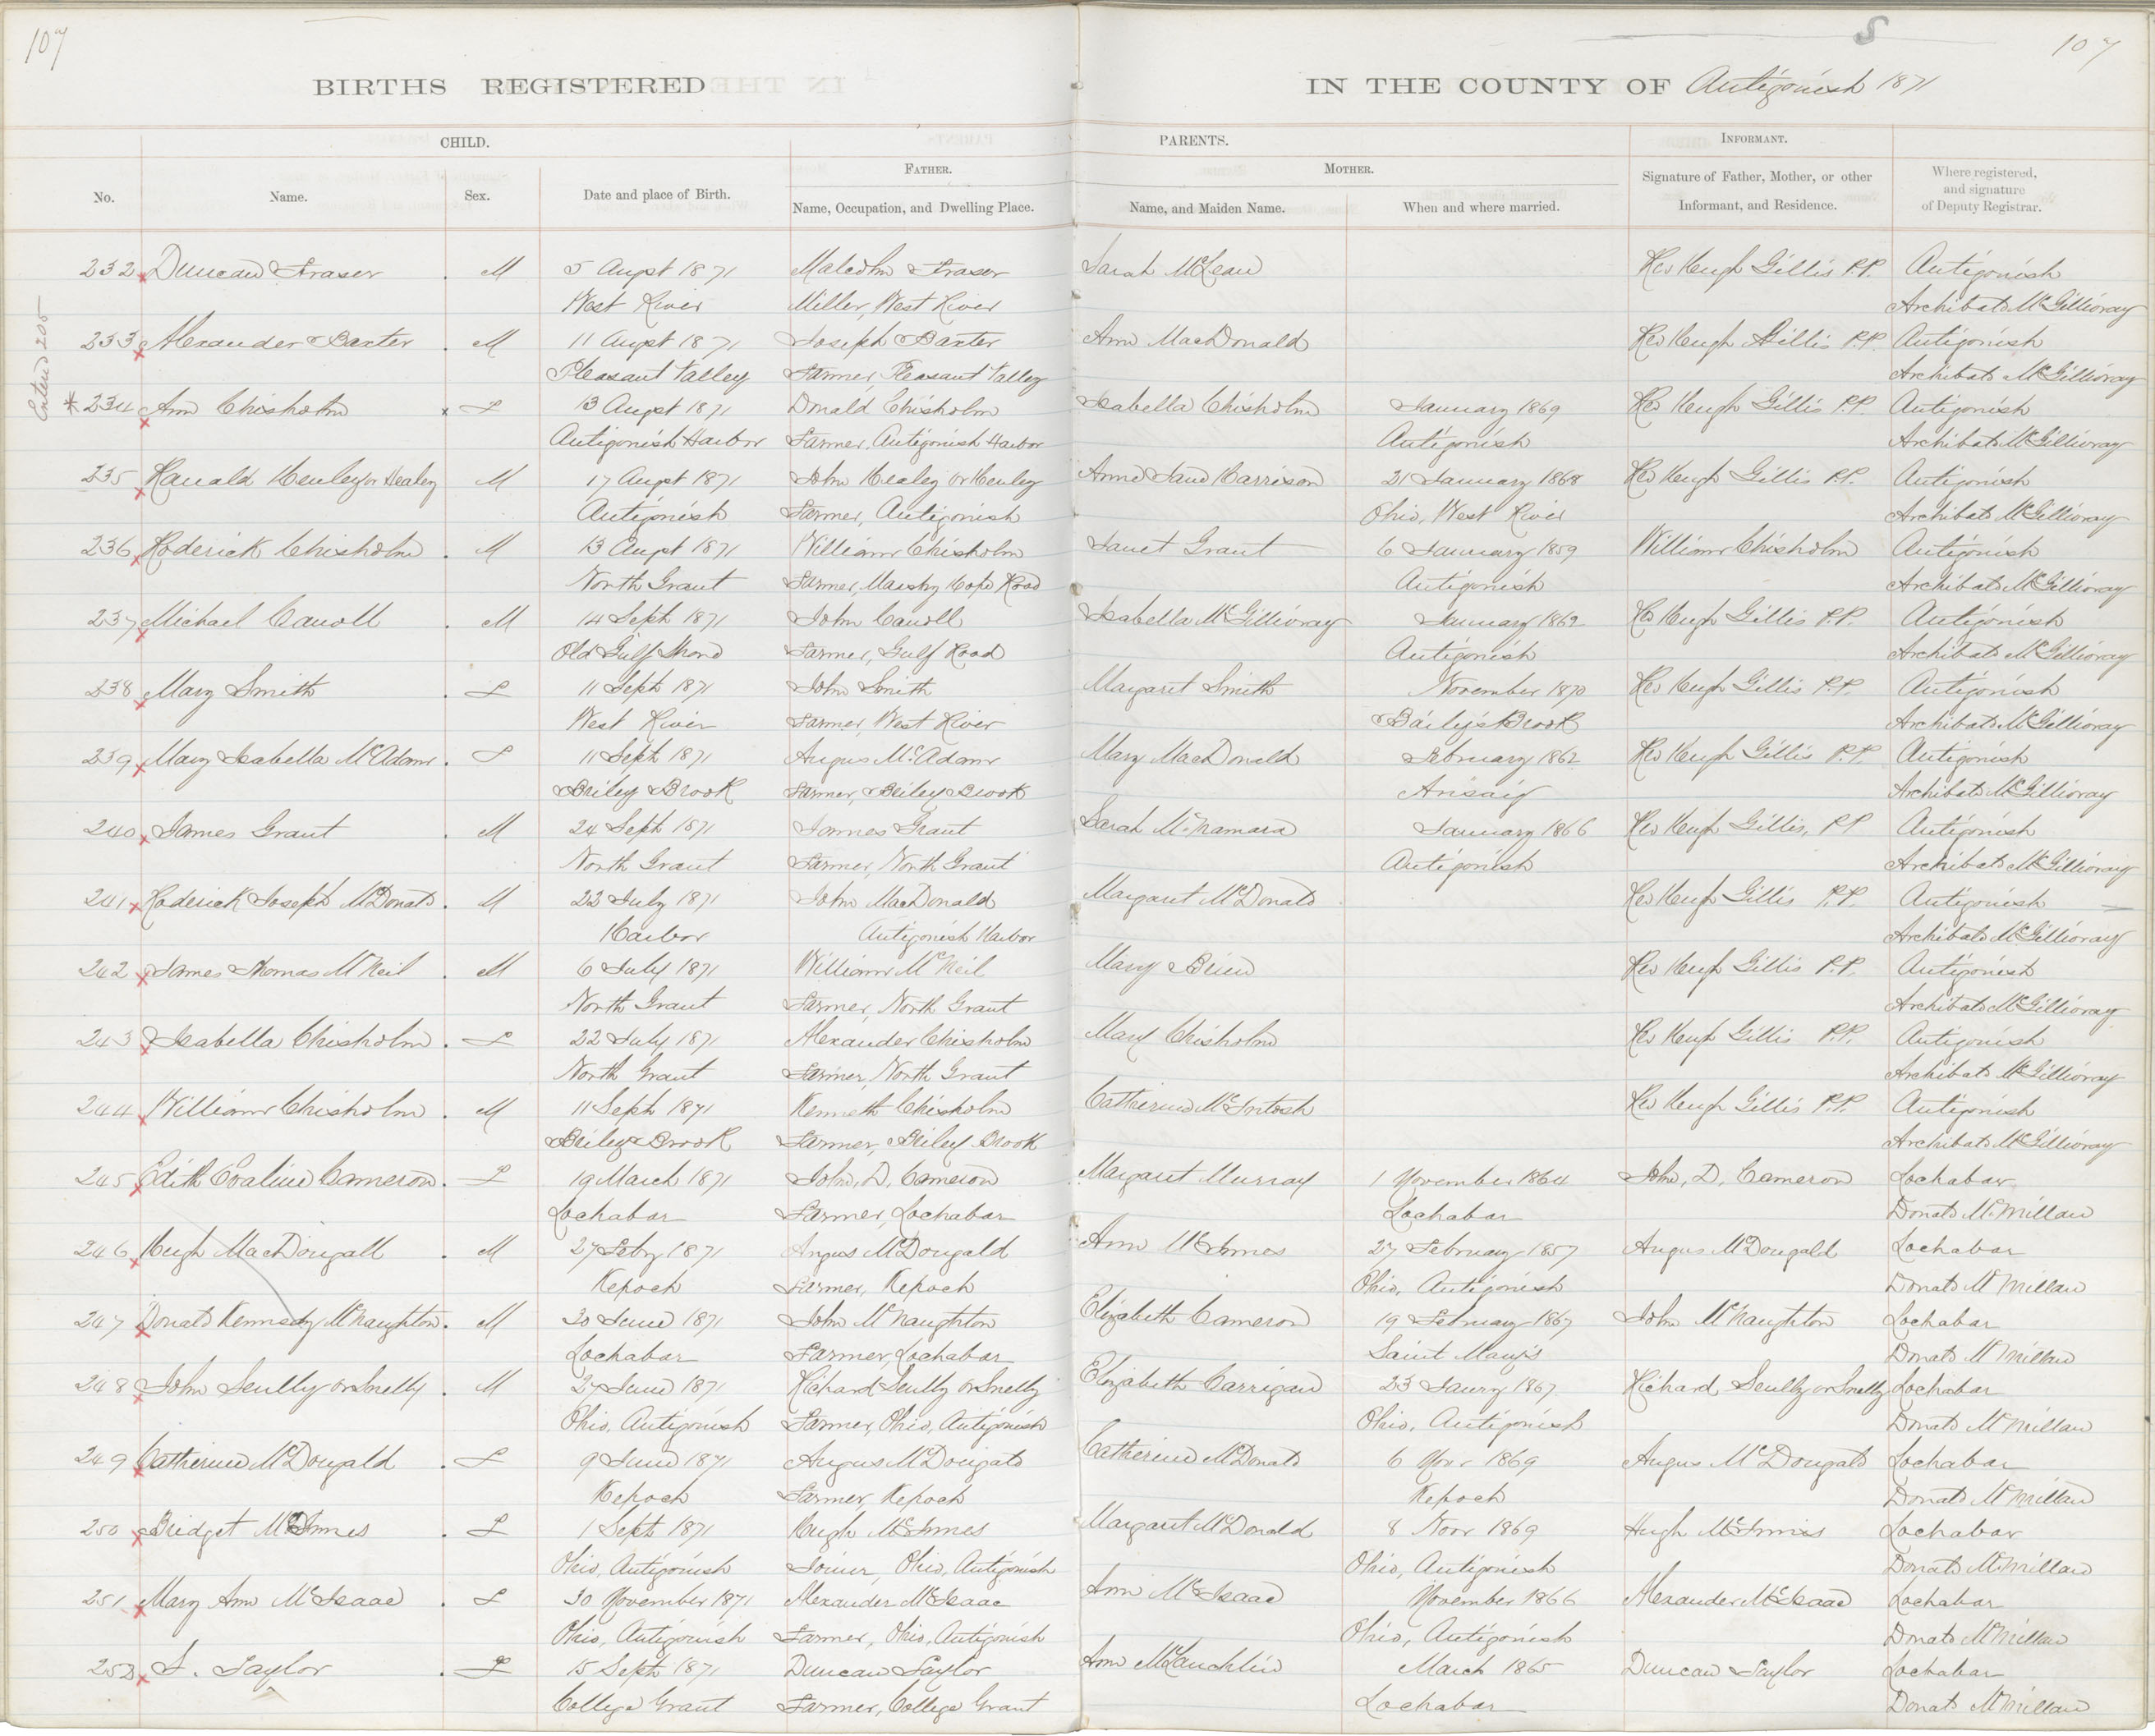 107
107
BIRTHS REGISTERED IN THE COUNTY OF Antigonish 1871
CHILD. PARENTS. INFORMANT.
FATHER. MOTHER.
No. Name. Sex. Date and place of Birth. Name, Occupation, and Dwelling Place. Name, and Maiden Name. When and where married. Signature of Father, Mother, or other Informant, and Residence. Where registered, and signature of Deputy Registrar.
232 Duncan Fraser M 5 Augst 1871 Malcolm Fraser Sarah McLean Rev Hugh Gillis P.P. Antigonish
West River Miller, West River Archibald McGillivray
Entered 205
233 Alexander Baxter M 11 Augst 1871 Joseph Baxter Ann MacDonald Rev Hugh Gillis P.P. Antigonish
Pleasant Valley Farmer, Pleasant Valley Archibald McGillivray
* 234 Ann Chisholm F 13 Augst 1871 Donald Chisholm Isabella Chisholm January 1869 Rev Hugh Gillis P.P. Antigonish
Antigonish Harbor Farmer, Antigonish Harbor Antigonish Archibald McGillivray
235 Ranald Henley or Healey M 17 Augst 1871 John Healey or Henley Anne Jane Harrison 21 January 1868 Rev Hugh Gillis P.P. Antigonish
Antigonish Farmer, Antigonish Ohio, West River Archibald McGillivray
236 Roderick Chisholm M 13 Augst 1871 William Chisholm Janet Grant 6 January 1859 William Chisholm Antigonish
North Grant Farmer, Marshy Hope Road Antigonish Archibald McGillivray
237 Michael Carroll M 14 Sept 1871 John Carroll Isabella McGillivray January 1862 Rev Hugh Gillis P.P. Antigonish
Old Gulf Farmer, Gulf Road Antigonish Archibald McGillivray
238 Mary Smith F 11 Sept 1871 John Smith Margaret Smith November 1870 Rev Hugh Gillis P.P. Antigonish
West River Farmer, West River Bailey's Brook Archibald McGillivray
239 Mary Isabella McAdam F 11 Sept 1871 Angus McAdam Mary MacDonald February 1862 Rev Hugh Gillis P.P. Antigonish
Briley Brook Farmer, Briley Brook Arisaig Archibald McGillivray
240 James Grant M 24 Sept 1871 James Grant Sarah McNamara January 1866 Rev Hugh Gillis, P.P. Antigonish
North Grant Farmer, North Grant Antigonish Archibald McGillivray
241 Roderick Joseph McDonald M 23 July 1871 John MacDonald Margaret McDonald Rev Hugh Gillis P.P. Antigonish
Harbor Antigonish Harbor Archibald McGillivray
242 James Thomas McNeil M 6 July 1871 William McNeil Mary Brien Rev Hugh Gillis P.P. Antigonish
North Grant Farmer, North Grant Archibald McGillivray
243 Isabella Chisholm F 22 July 1871 Alexander Chisholm Mary Chisholm Rev Hugh Gillis P.P. Antigonish
North Grant Farmer, North Grant Archibald McGillivray
244 William Chisholm M 11 Sept 1871 Kenneth Chisholm Catherine McIntosh Rev Hugh Gillis P.P. Antigonish
Briley Brook Farmer, Briley Brook Archibald McGillivray
245 Edith Evaline Cameron F 19 March 1871 John, D. Cameron Margaret Murray 1 November 1864 John, D. Cameron Lochabar
Lochabar Farmer, Lochabar Lochabar Donald McMillan
246 Hugh MacDougall M 27 Feby 1871 Angus McDougald Ann McInnes 27 February 1857 Angus McDougald Lochabar
Kepoch Farmer, Kepoch Ohio, Antigonish Donald McMillan
247 Donald Kennedy McNaughton M 30 June 1871 John McNaughton Elizabeth Cameron 19 February 1867 John McNaughton Lochabar
Lochabar Farmer, Lochabar Saint Mary's Donald McMillan
248 John Scully or Smelly M 27 June 1871 Richard Scully or Smelly Elizabeth Carrigan 23 Jany 1867 Richard Scully or Smelly Lochabar
Ohio, Antigonish Farmer, Ohio, Antigonish Ohio, Antigonish Donald McMillan
249 Catherine McDougald F 9 June 1871 Angus McDougald Catherine McDonald 6 Nov 1869 Angus McDougald Lochabar
Kepoch Farmer, Kepoch Kepoch Donald McMillan
250 Bridget McInnes F 1 Sept 1871 Hugh McInnes Margaret McDonald 8 Novr 1869 Hugh McInnis Lochabar
Ohio, Antigonish Joiner, Ohio, Antigonish Ohio, Antigonish Donald McMillan
251 Mary Ann McIsaac F 30 November 1871 Alexander McIsaac Ann McIsaac November 1866 Alexander McIsaac Lochabar
Ohio, Antigonish Farmer, Ohio, Antigonish Ohio, Antigonish Donald McMillan
252 Taylor F 15 Sept 1871 Duncan Taylor Ann McLauchlin March 1865 Duncan Taylor Lochabar
College Grant Farmer, College Grant Lochabar Donald McMillan